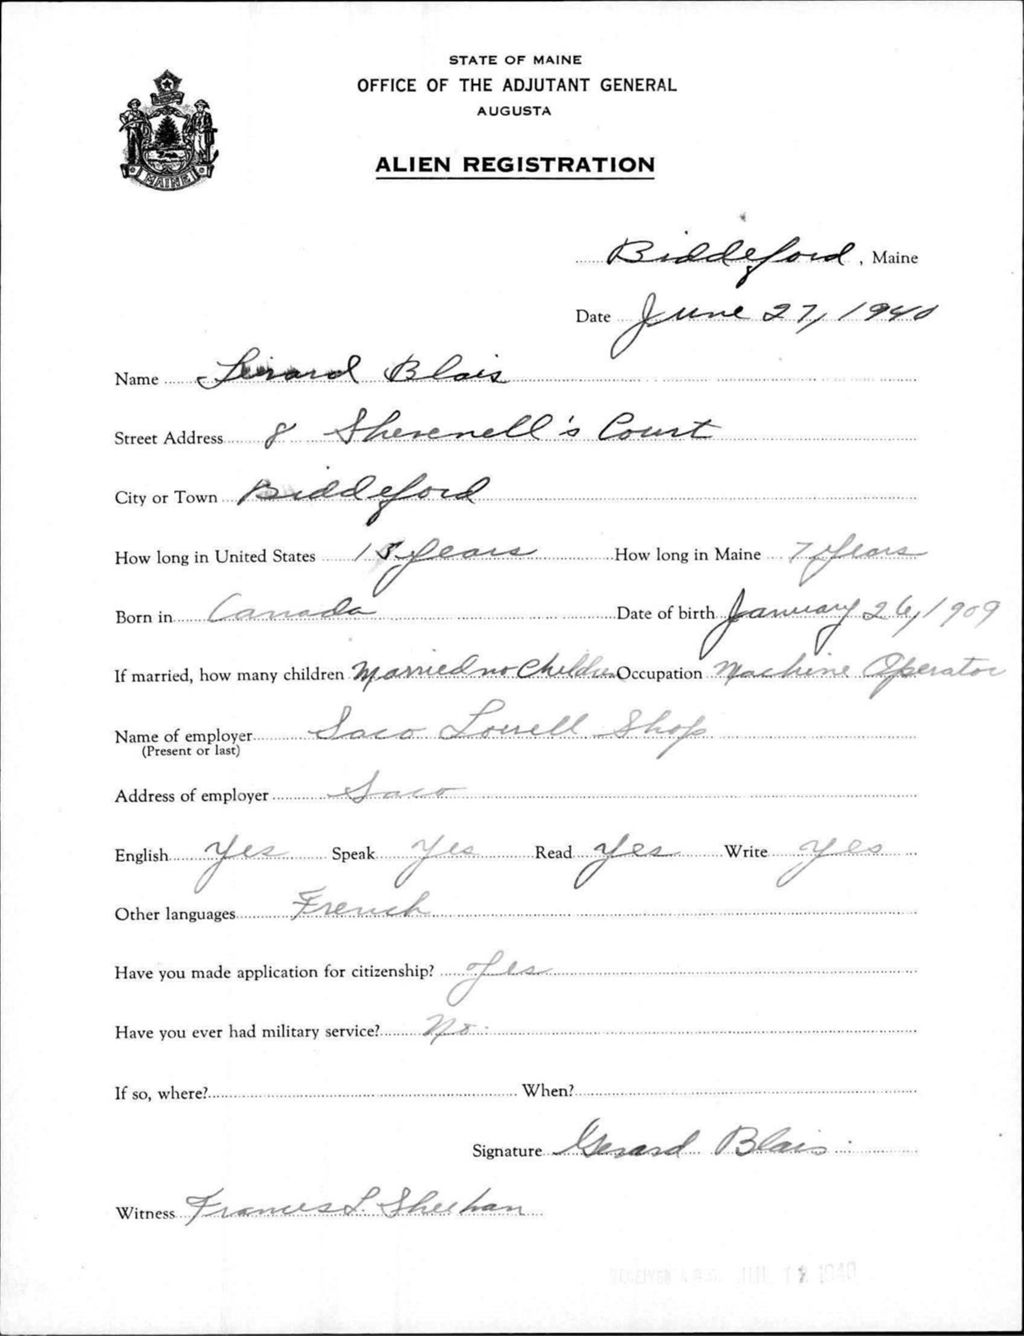 STATE OF MAINE
OFFICE OF THE ADJUTANT GENERAL
AUGUSTA
MAINE
ALIEN REGISTRATION
Biddeford, Maine
Date June 27, 1940
Name Gerard Blais
Street Address 8 Sherenell's Court
City or Town Biddeford
How long in United States years How long in Maine 7 years
Born in Canada Date of birth January 26, 1909
If married, how many children Married no Children Occupation Machine Operator
Name of employer Saco Lowell Shop
(Present or last)
Address of employer Saco
English Yes Speak Yes Read Yes Write Yes
Other languages French
Have you made application for citizenship? Yes
Have you ever had military service? No.
If so, where? When?
Signature Gerard Blais
Witness Frances L. Sheehan
RECEIVED A.G.O. JUL 1940